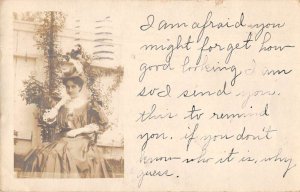 I am afraid you
might forget how
good looking I am
so I send you
this to remind
you. if you don't
know who it is, why
guess.